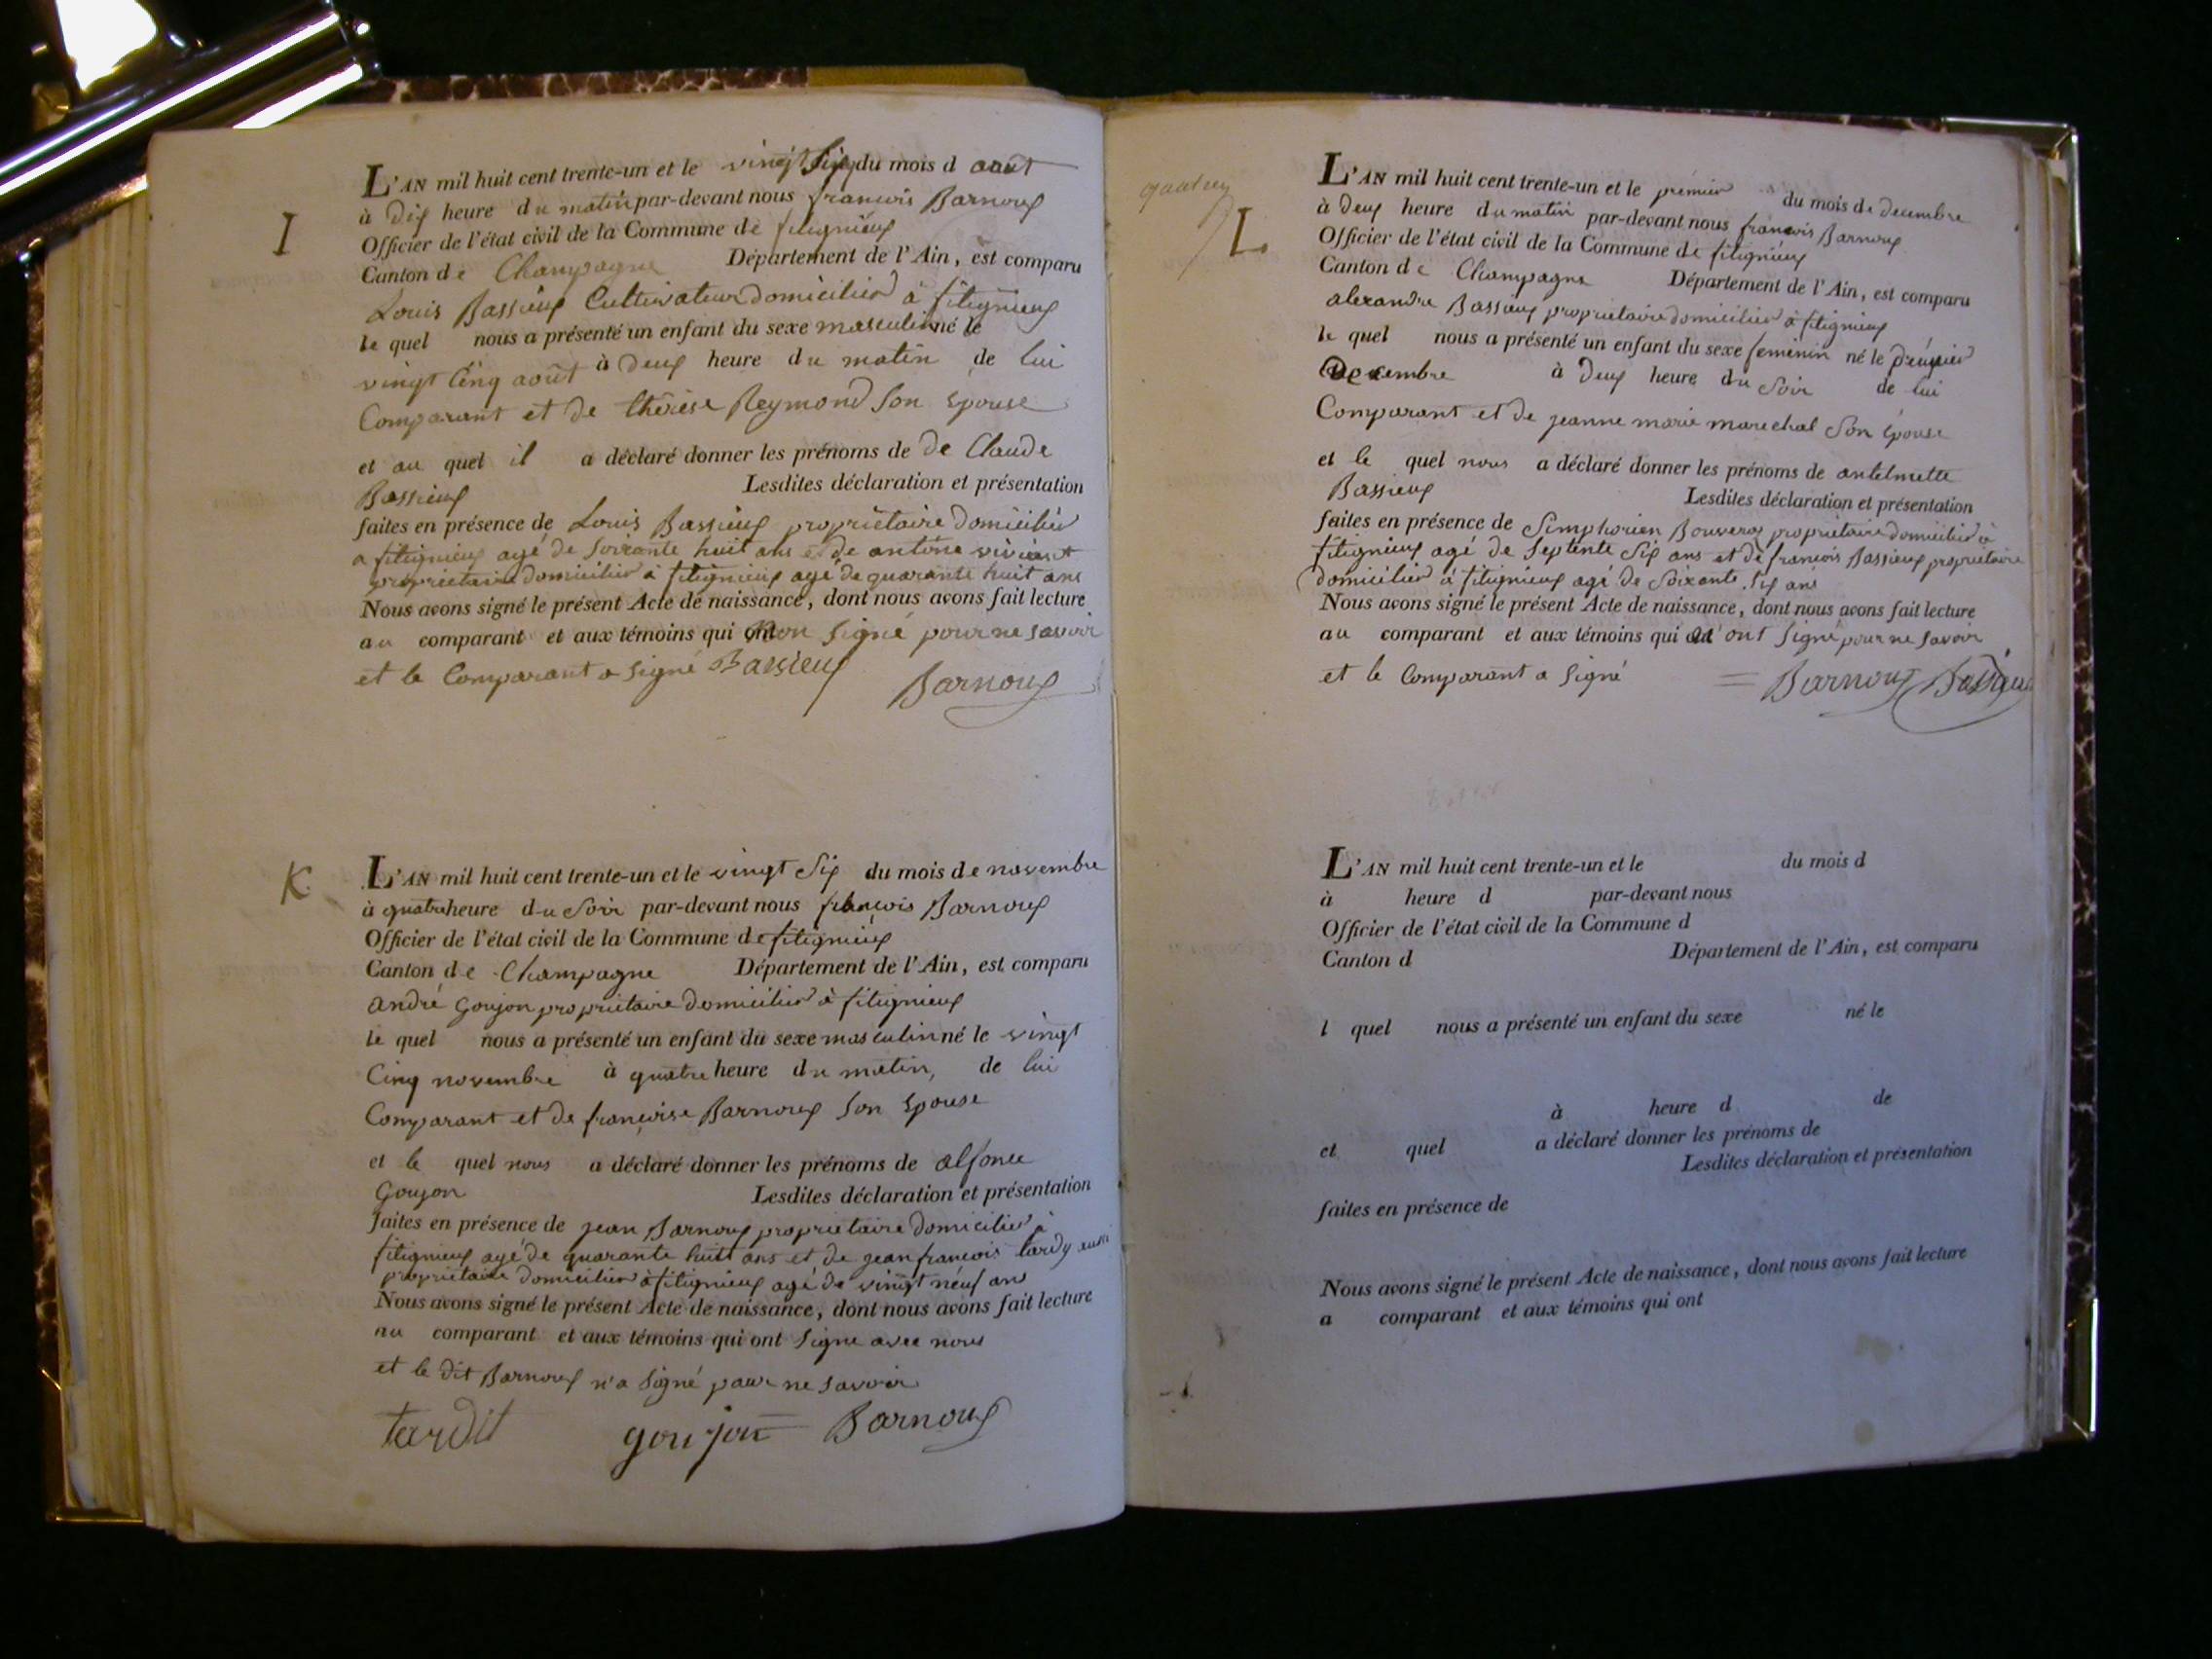 I
L'AN mil huit cent trente-un et le vingt six du mois d août
à dix heure du matin par-devant nous francois Barnoux
Officier de l'état civil de la Commune de fitignieux
Canton de Champagne Département de l'Ain, est comparu
Louis Bassieux Cultivateur domicilié à fitignieux
le quel nous a présenté un enfant du sexe masculin né le
vingt Cinq août à deux heure du matin de lui
Comparant et de thérèse Reymond Son épouse
et au quel il a déclaré donner les prénoms de de Claude
Bassieux Lesdites déclaration et présentation
faites en présence de Louis Bassieux proprietaire domicilié
a fitignieux agé de Soixante huit ans et de antoine
proprietaire domicilié à fitignieux agé de quarante huit ans
Nous avons signé le présent Acte de naissance, dont nous avons fait lecture
au comparant et aux témoins qui non Signé pour ne savoir
et le Comparant a signé Bassieux
Barnoux
K
L'AN mil huit cent trente-un et le vingt Six du mois de novembre
à quatre heure du Soir par-devant nous françois Barnoux
Officier de l'état civil de la Commune de fitignieux
Canton de Champagne Département de l'Ain, est comparu
andré Goujon proprietaire domicilié à fitignieux
le quel nous a présenté un enfant du sexe masculin né le vingt
Cinq novembre à quatre heure du matin, de lui
Comparant et de françoise Barnoux Son Epouse
et le quel nous a déclaré donner les prénoms de alfonce
Goujon Lesdites déclaration et présentation
faites en présence de jean Barnoux proprietaire domicilié à
fitignieux agé de quarante huit ans et de jean francois tardy aussi
proprietaire domicilié à fitignieux agé de vingt neuf ans
Nous avons signé le présent Acte de naissance, dont nous avons fait lecture
au comparant et aux témoins qui ont Signe avec nous
et le dit Barnoux n'a Signé pour ne savoir
tardit goujon Barnoux
L
L'AN mil huit cent trente-un et le premier du mois de decembre
à deux heure du matin par-devant nous francois Barnoux
Officier de l'état civil de la Commune de fitignieux
Canton de Champagne Département de l'Ain, est comparu
alexandre Bassieux proprietaire domicilié à fitignieux
le quel nous a présenté un enfant du sexe feminin né le premier
Decembre à deux heure du Soir de lui
Comparant et de jeanne marie marechal Son épouse
et le quel nous a déclaré donner les prénoms de antelmette
Bassieux Lesdites déclaration et présentation
faites en présence de Simphorien Bouveroz proprietaire domicilié à
fitignieux agé de Septente Six ans et de francois Bassieux proprietaire
domicilié à fitignieux agé de Soixante Six ans
Nous avons signé le présent Acte de naissance, dont nous avons fait lecture
au comparant et aux témoins qui n'ont Signé pour ne savoir
et le Comparant a Signé Barnoux Bassieux
L'AN mil huit cent trente-un et le du mois d
à heure d par-devant nous
Officier de l'état civil de la Commune d
Canton d Département de l'Ain, est comparu
l quel nous a présenté un enfant du sexe né le
à heure d de
et quel a déclaré donner les prénoms de
Lesdites déclaration et présentation
faites en présence de
Nous avons signé le présent Acte de naissance, dont nous avons fait lecture
a comparant et aux témoins qui ont